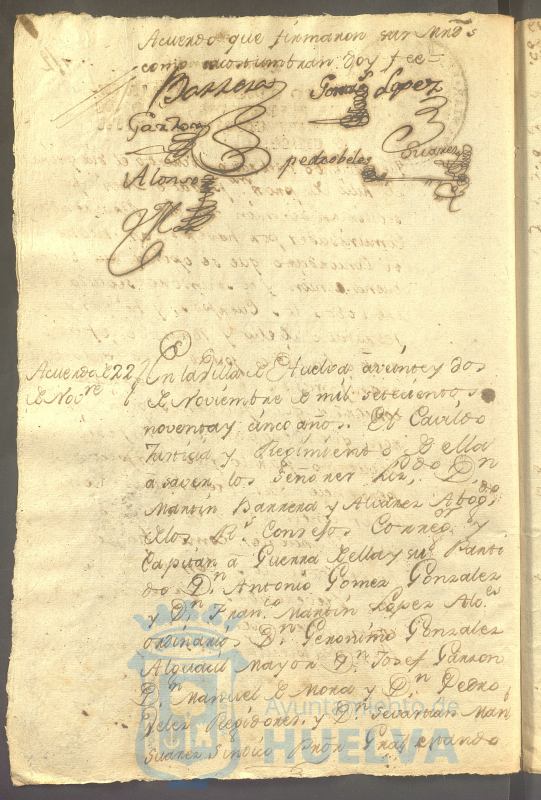 Acuerdo que firmaron sus Mrds
como acostumbran doy fee=
Barrera Gomz Lopez
Garzon
pedrobeles Suarez
Alonso
Acuerdo de 22 En la Villa de Huelva a veinte y dos
de Novre de Noviembre de mil setecientos
noventa y cinco años. El Cavildo
Justicia y Regimiento de ella
a saver los Señores Liz. Dn
Martin Barrera y Alvarez Abogdo
de los Rs Consejos Corregor y
Capitan à Guerra de ella y su Parti
do Dn Antonio Gomez Gonzalez
y Dn Franco Martin Lopez Alces
ordinarios Dn Geronimo Gonzalez
Alguacil Mayor Dn Josef Garzon
Dn Manuel de Mora y Dn Pedro
Velez Regidores, y Dn Sevastian Marn
Suarez Sindico Pror Gral estando
Ayuntamiento de
HUELVA